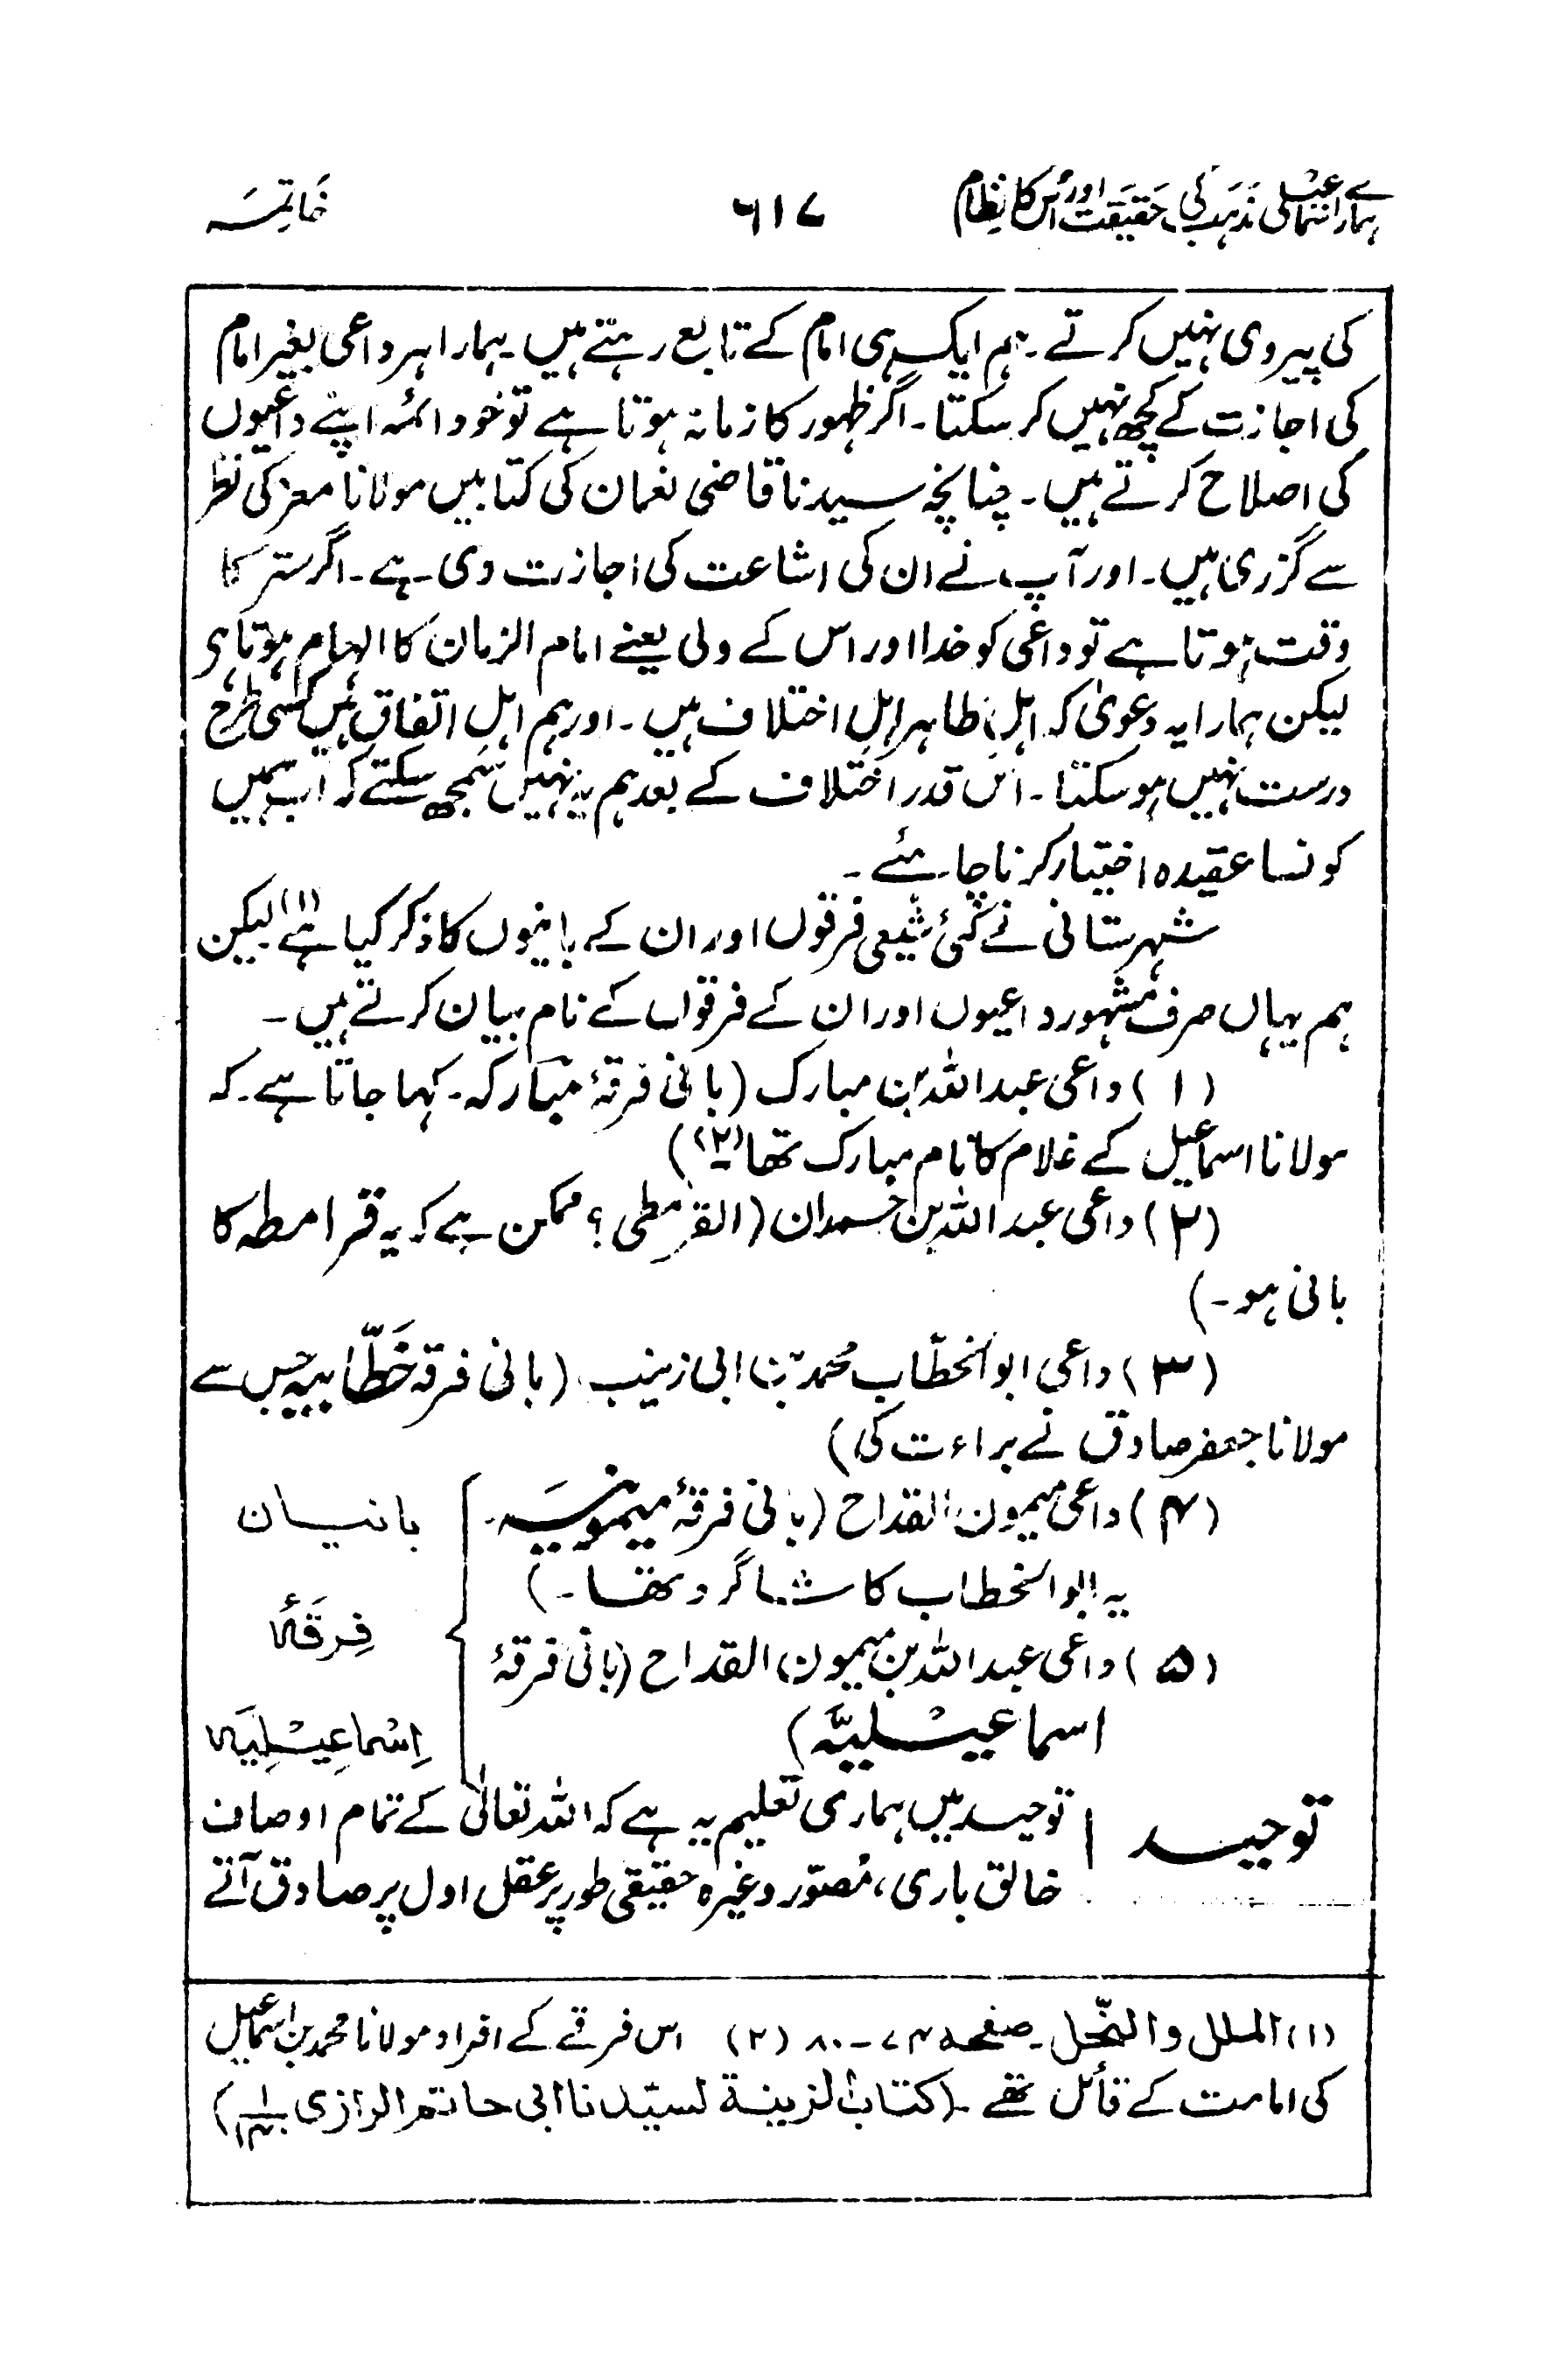 ہمارے اسمٰعیلی مذہب کی حقیقت اور اُس کا نظام
۶۱۷
خَاتِمَہ
کی پیروی نہیں کرتے۔ ہم ایک ہی امام کے تابع رہتے ہیں۔ ہمارا ہر داعی بغیر امام
کی اجازت کے کچھ نہیں کر سکتا۔ اگر ظہور کا زمانہ ہوتا ہے تو خود ائمہ اپنے داعیوں
کی اصلاح کرتے ہیں۔ چنانچہ سیدنا قاضی نعمان کی کتابیں مولانا معز کی نظر
سے گزری ہیں۔ اور آپ نے ان کی اشاعت کی اجازت دی ہے۔ اگر ستر کا
وقت ہوتا ہے تو داعی کو خدا اور اس کے ولی یعنے امام الزمان کا الہام ہوتا ہی
لیکن ہمارا یہ دعویٰ کہ اہلِ ظاہر اہلِ اختلاف ہیں۔ اور ہم اہلِ اتفاق ہیں کسی طرح
درست نہیں ہو سکتا۔ اس قدر اختلاف کے بعد ہم یہ نہیں سمجھ سکتے کہ اب ہمیں
کونسا عقیدہ اختیار کرنا چاہئے۔
شہرستانی نے کئی شیعی فرقوں اور ان کے بانیوں کا ذکر کیا ہے (۱) لیکن
ہم یہاں صرف مشہور داعیوں اور ان کے فرقوں کے نام بیان کرتے ہیں۔
(۱) داعی عبد اللہ بن مبارک (بانی فرقۂ مبارکہ۔ کہا جاتا ہے۔ کہ
مولانا اسماعیل کے غلام کا نام مبارک تھا (۲)۔)
(۲) داعی عبد اللہ بن حمدان (القرمطی؟ ممکن ہے کہ یہ قرامطہ کا
بانی ہو۔)
(۳) داعی ابو الخطّاب محمد بن ابی زینب (بانی فرقہ خَطَّابیہ جس سے
مولانا جعفر صادق نے براءت کی)
(۴) داعی میمون القداح (بانی فرقۂ میمونیَہ۔
یہ ابو الخطاب کا شاگرد تھا۔)
(۵) داعی عبد اللہ بن میمون القداح (بانی فرقۂ
اسماعیلیَّہ)
بانیان
فِرقَۂ
اِسْماعِیْلِیَہ
توحید
توحید میں ہماری تعلیم یہ ہے کہ اللہ تعالیٰ کے تمام اوصاف
خالق باری، مُصوّر وغیرہ حقیقی طور پر عقل اول پر صادق آتے
(۱) الملل والنِّحل۔ صفحہ ۷۴-۸۰ (۲) اس فرقے کے افراد مولانا محمد بن اسماعیل
کی امامت کے قائل تھے۔ (کتاب الزینۃ لسیّدنا ابی حاتم الرازی)